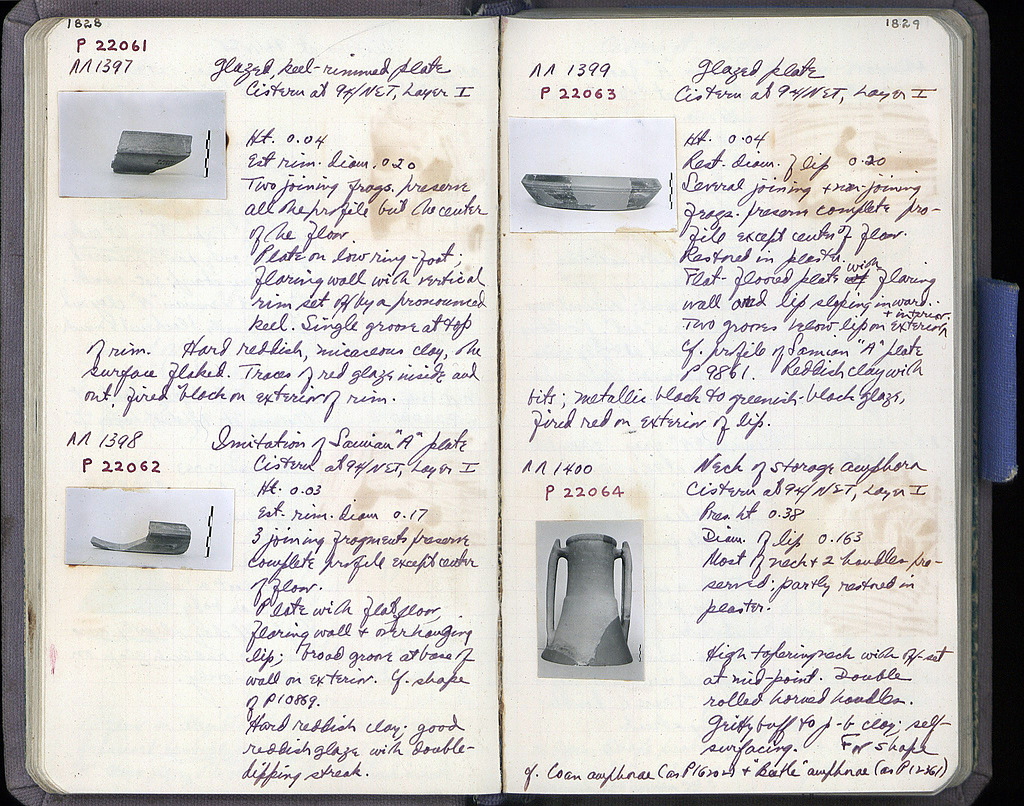 1828
P 22061
ΛΛ 1397 Glazed, keel-rimmed plate
Cistern at 94/ΝΕΤ, Layer I
Ht. 0.04
Est rim. diam. 0.20
Two joining frags. preserve
all the profile but the center
of the floor.
Plate on low ring-foot;
flaring wall with vertical
rim set off by a pronounced
keel. Single groove at top
of rim. Hard reddish, micaceous clay, the
surface flaked. Traces of red glaze inside and
out, fired black on exterior of rim.
ΛΛ 1398 Imitation of Samian "A" plate
P 22062 Cistern at 94/ΝΕΤ, Layer I
Ht. 0.03
Est. rim. diam 0.17
3 joining fragments preserve
complete profile except center
of floor.
Plate with flat floor,
flaring wall + overhanging
lip; broad groove at base of
wall on exterior. Cf. shape
of P10869.
Hard reddish clay; good
reddish glaze with double-
dipping streak.
1829
ΛΛ 1399 Glazed plate
P 22063 Cistern at 94/ΝΕΤ, Layer I
Ht. 0.04
Rest. diam. of lip 0.20
Several joining + non-joining
frags. preserve complete pro-
file except center of floor.
Restored in plaster.
Flat-floored plate with flaring
wall and lip sloping inward.
Two grooves below lip on exterior + interior.
Cf. profile of Samian "A" plate
P 9861. Reddish clay with
bits; metallic black to greenish-black glaze,
fired red on exterior of lip.
ΛΛ 1400 Neck of storage amphora
P 22064 Cistern at 94/ΝΕΤ, Layer I
Pres. ht 0.38
Diam. of lip 0.163
Most of neck + 2 handles pre-
served; partly restored in
plaster.
High tapering neck with off-set
at mid-point. Double
rolled horned handles.
Gritty buff to p-b clay; self-
surfacing. For shape
cf. Coan amphorae (as P16202) + "Beetle" amphorae (as P12361)